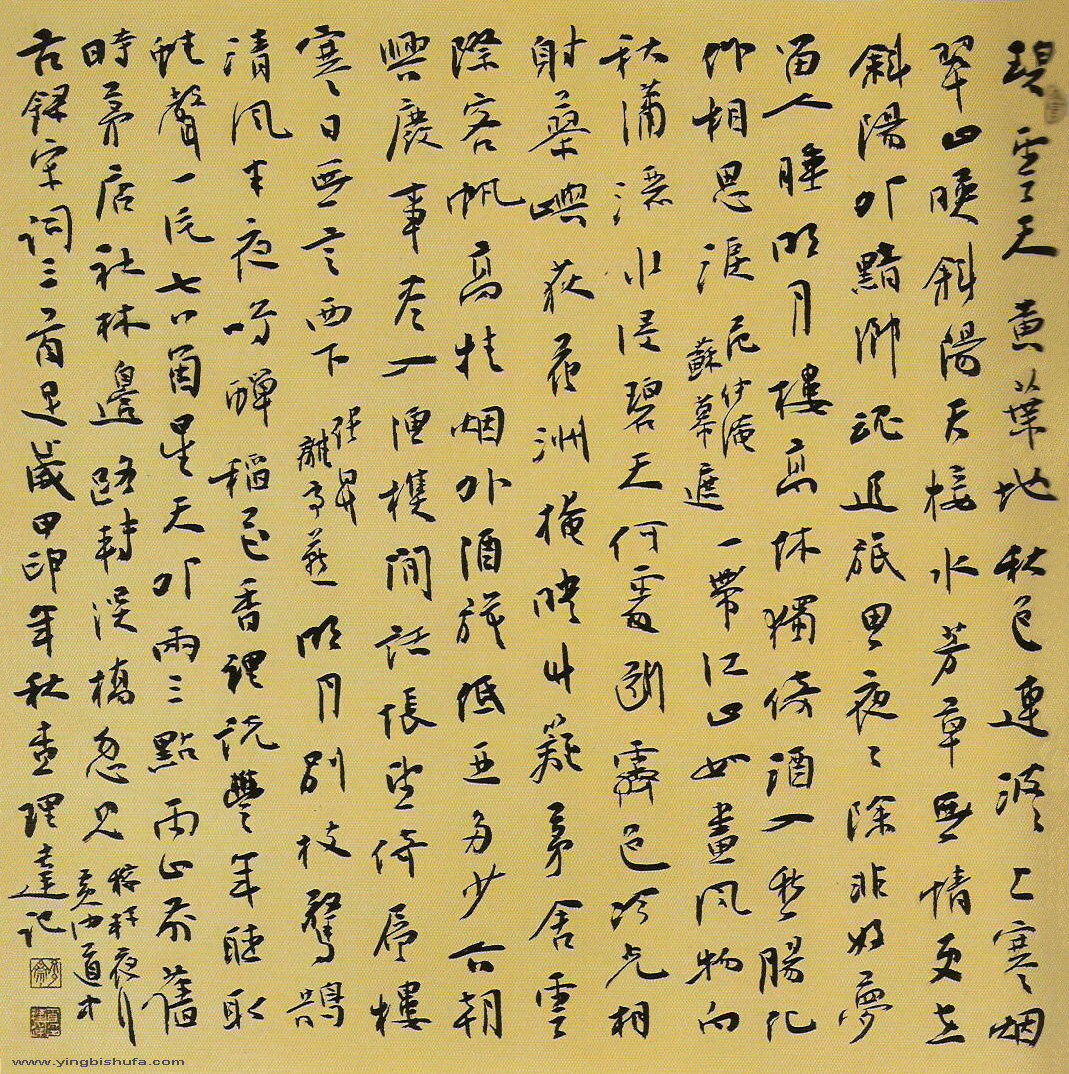 碧雲天黄葉地秋色連波〻上寒烟
翠山暎斜陽天接水芳草無情更在
斜陽外黯鄉魂追旅思夜〻除非好夢
留人睡明月樓高休獨倚酒入愁腸化
作相思淚
范仲淹
蘇幕遮
一帶江山如畫風物向
秋蒲灑水浸碧天何處斷霽色冷光相
射蓼嶼荻花洲掩映竹籬茅舍雲
際客帆高挂烟外酒旗低亞多少六朝
興廢事盡入漁樵閒話悵望倚層樓
寒日無言西下
張昇
離亭燕
明月別枝驚鵲
清風半夜鳴蟬稻花香裡說豐年聽取
蛙聲一片七八箇星天外兩三點雨山前舊
時茅店社林邊路轉溪橋忽見
稼軒夜行
黄沙道中
右録宋詞三首是歲卯年秋理達記
www.yingbishufa.com